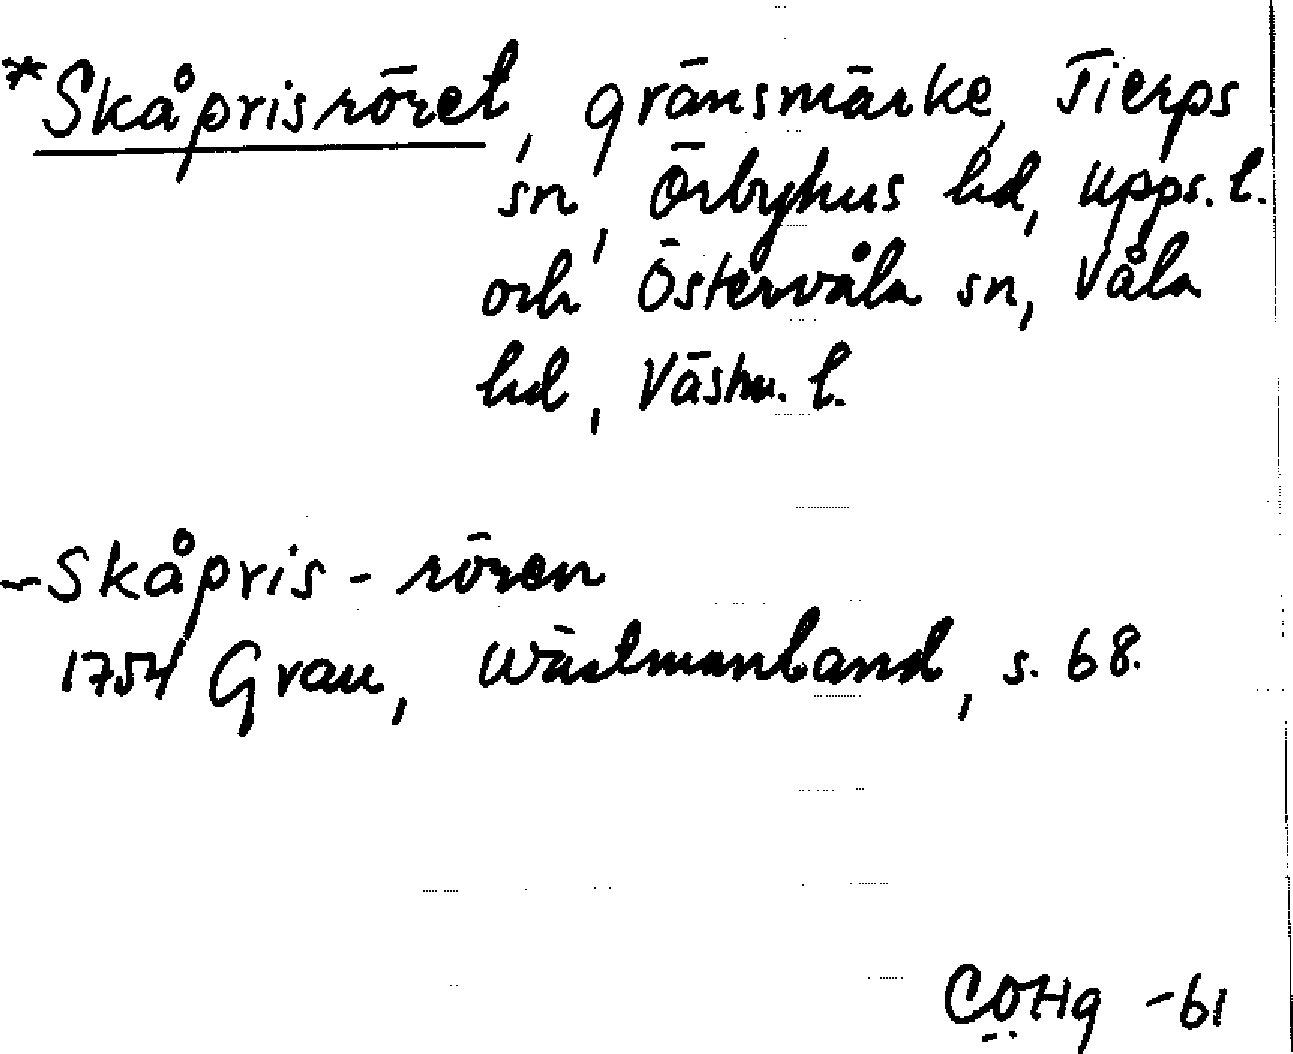 *Skåprisröret, gränsmärke, Tierps
sn, Örbyhus hd, Upps. l.
och Östervåla sn, Våla
hd, Västm. l.
~Skåpris-rören
1754 Grau, Wästmanland, s. 68.
COHg -61